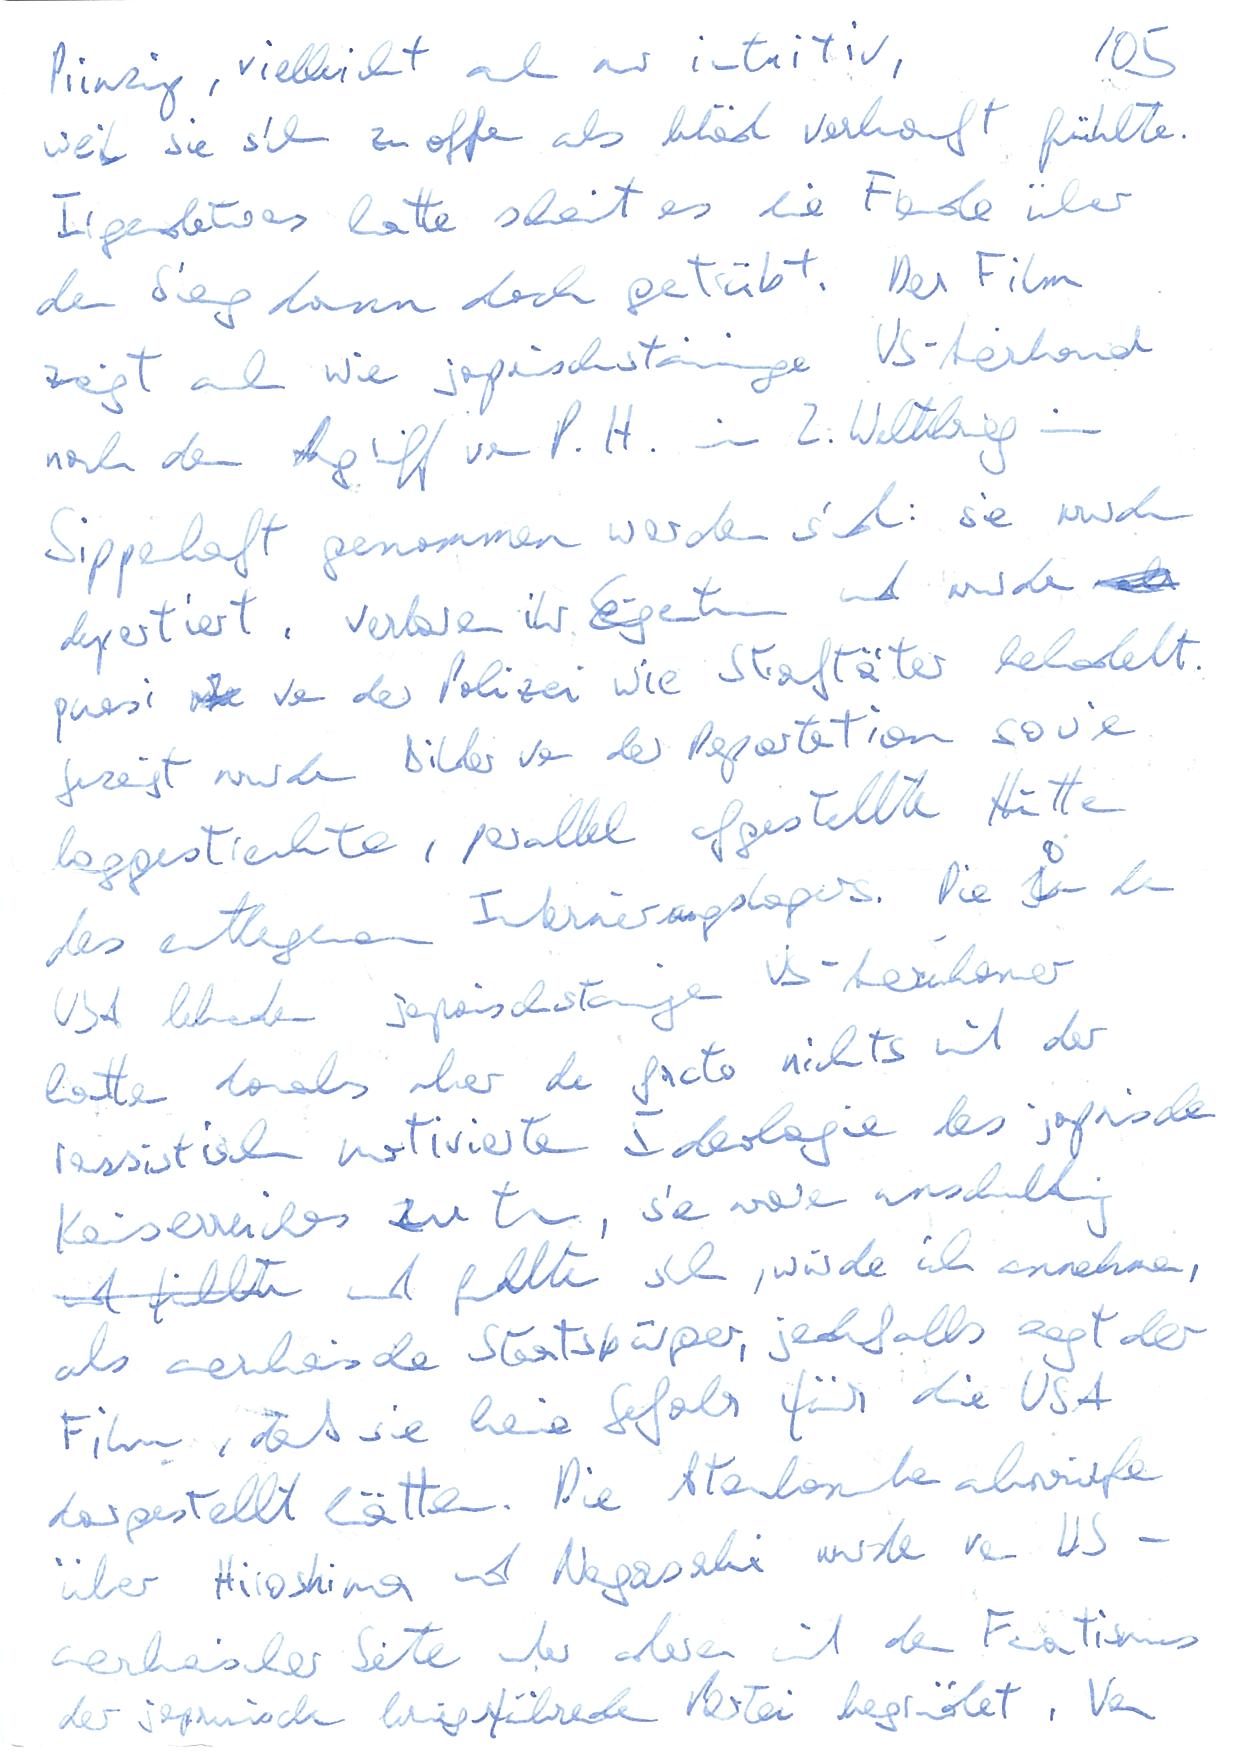 Prinzip, vielleicht auch nur intuitiv, 105
weil sie sich zu offen als blöd verkauft fühlte.
Irgendetwas hatte scheint es die Freude über
den Sieg dann doch getrübt. Der Film
zeigt auch wie japanischstämmige US-Amerikaner
nach dem Angriff von P. H. im 2. Weltkrieg in
Sippenhaft genommen worden sind: sie wurden
deportiert, verloren ihr Eigentum und wurden
quasi von der Polizei wie Straftäter behandelt.
Gezeigt wurden Bilder von der Deportation sowie
langgestreckte, parallel aufgestellte Hütten
des entlegenen Internierungslagers. Die in den
USA lebenden japanischstämmigen US-Amerikaner
hatten damals aber de facto nichts mit der
rassistisch motivierten Ideologie des japanischen
Kaiserreiches zu tun, sie waren unschuldig
und fühlten sich, würde ich annehmen,
als amerikanische Staatsbürger, jedenfalls zeigt der
Film, daß sie keine Gefahr für die USA
dargestellt hätten. Die Atombombenabwürfe
über Hiroshima und Nagasaki wurden von US-
amerikanischer Seite unter anderem mit dem Fanatismus
der japanischen kriegsführenden Partei begründet. Von